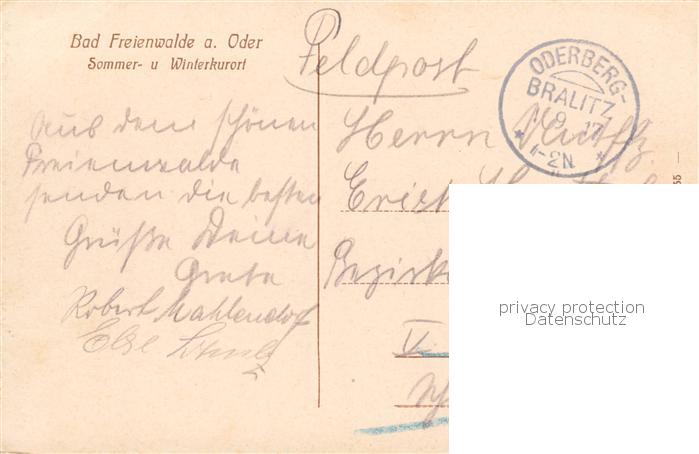 Bad Freienwalde a. Oder
Sommer- u Winterkurort
Feldpost
ODERBERG-
BRALITZ
9 17
1-2N
Aus dem schönen
Freienwalde
senden die besten
Grüße Deine
Grete
Robert Mahlendorf
Else
Herrn
Bezirks
V
privacy protection
Datenschutz